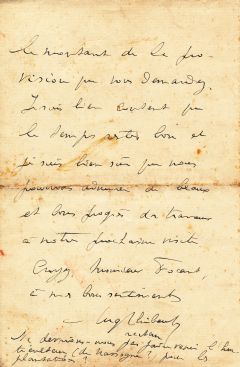 le montant de la pro-
vision que vous demandez.
Je suis bien content que
le temps reste bon et
je suis bien sûr que nous
pourrons admirer de beaux
et bons progrès du travail
à notre prochaine visite
Croyez, Monsieur Focant,
à mes bons sentiments
Aug Thibaut
Ne devriez-vous pas faire venir
(de Nassogne) pour les
plantations ?